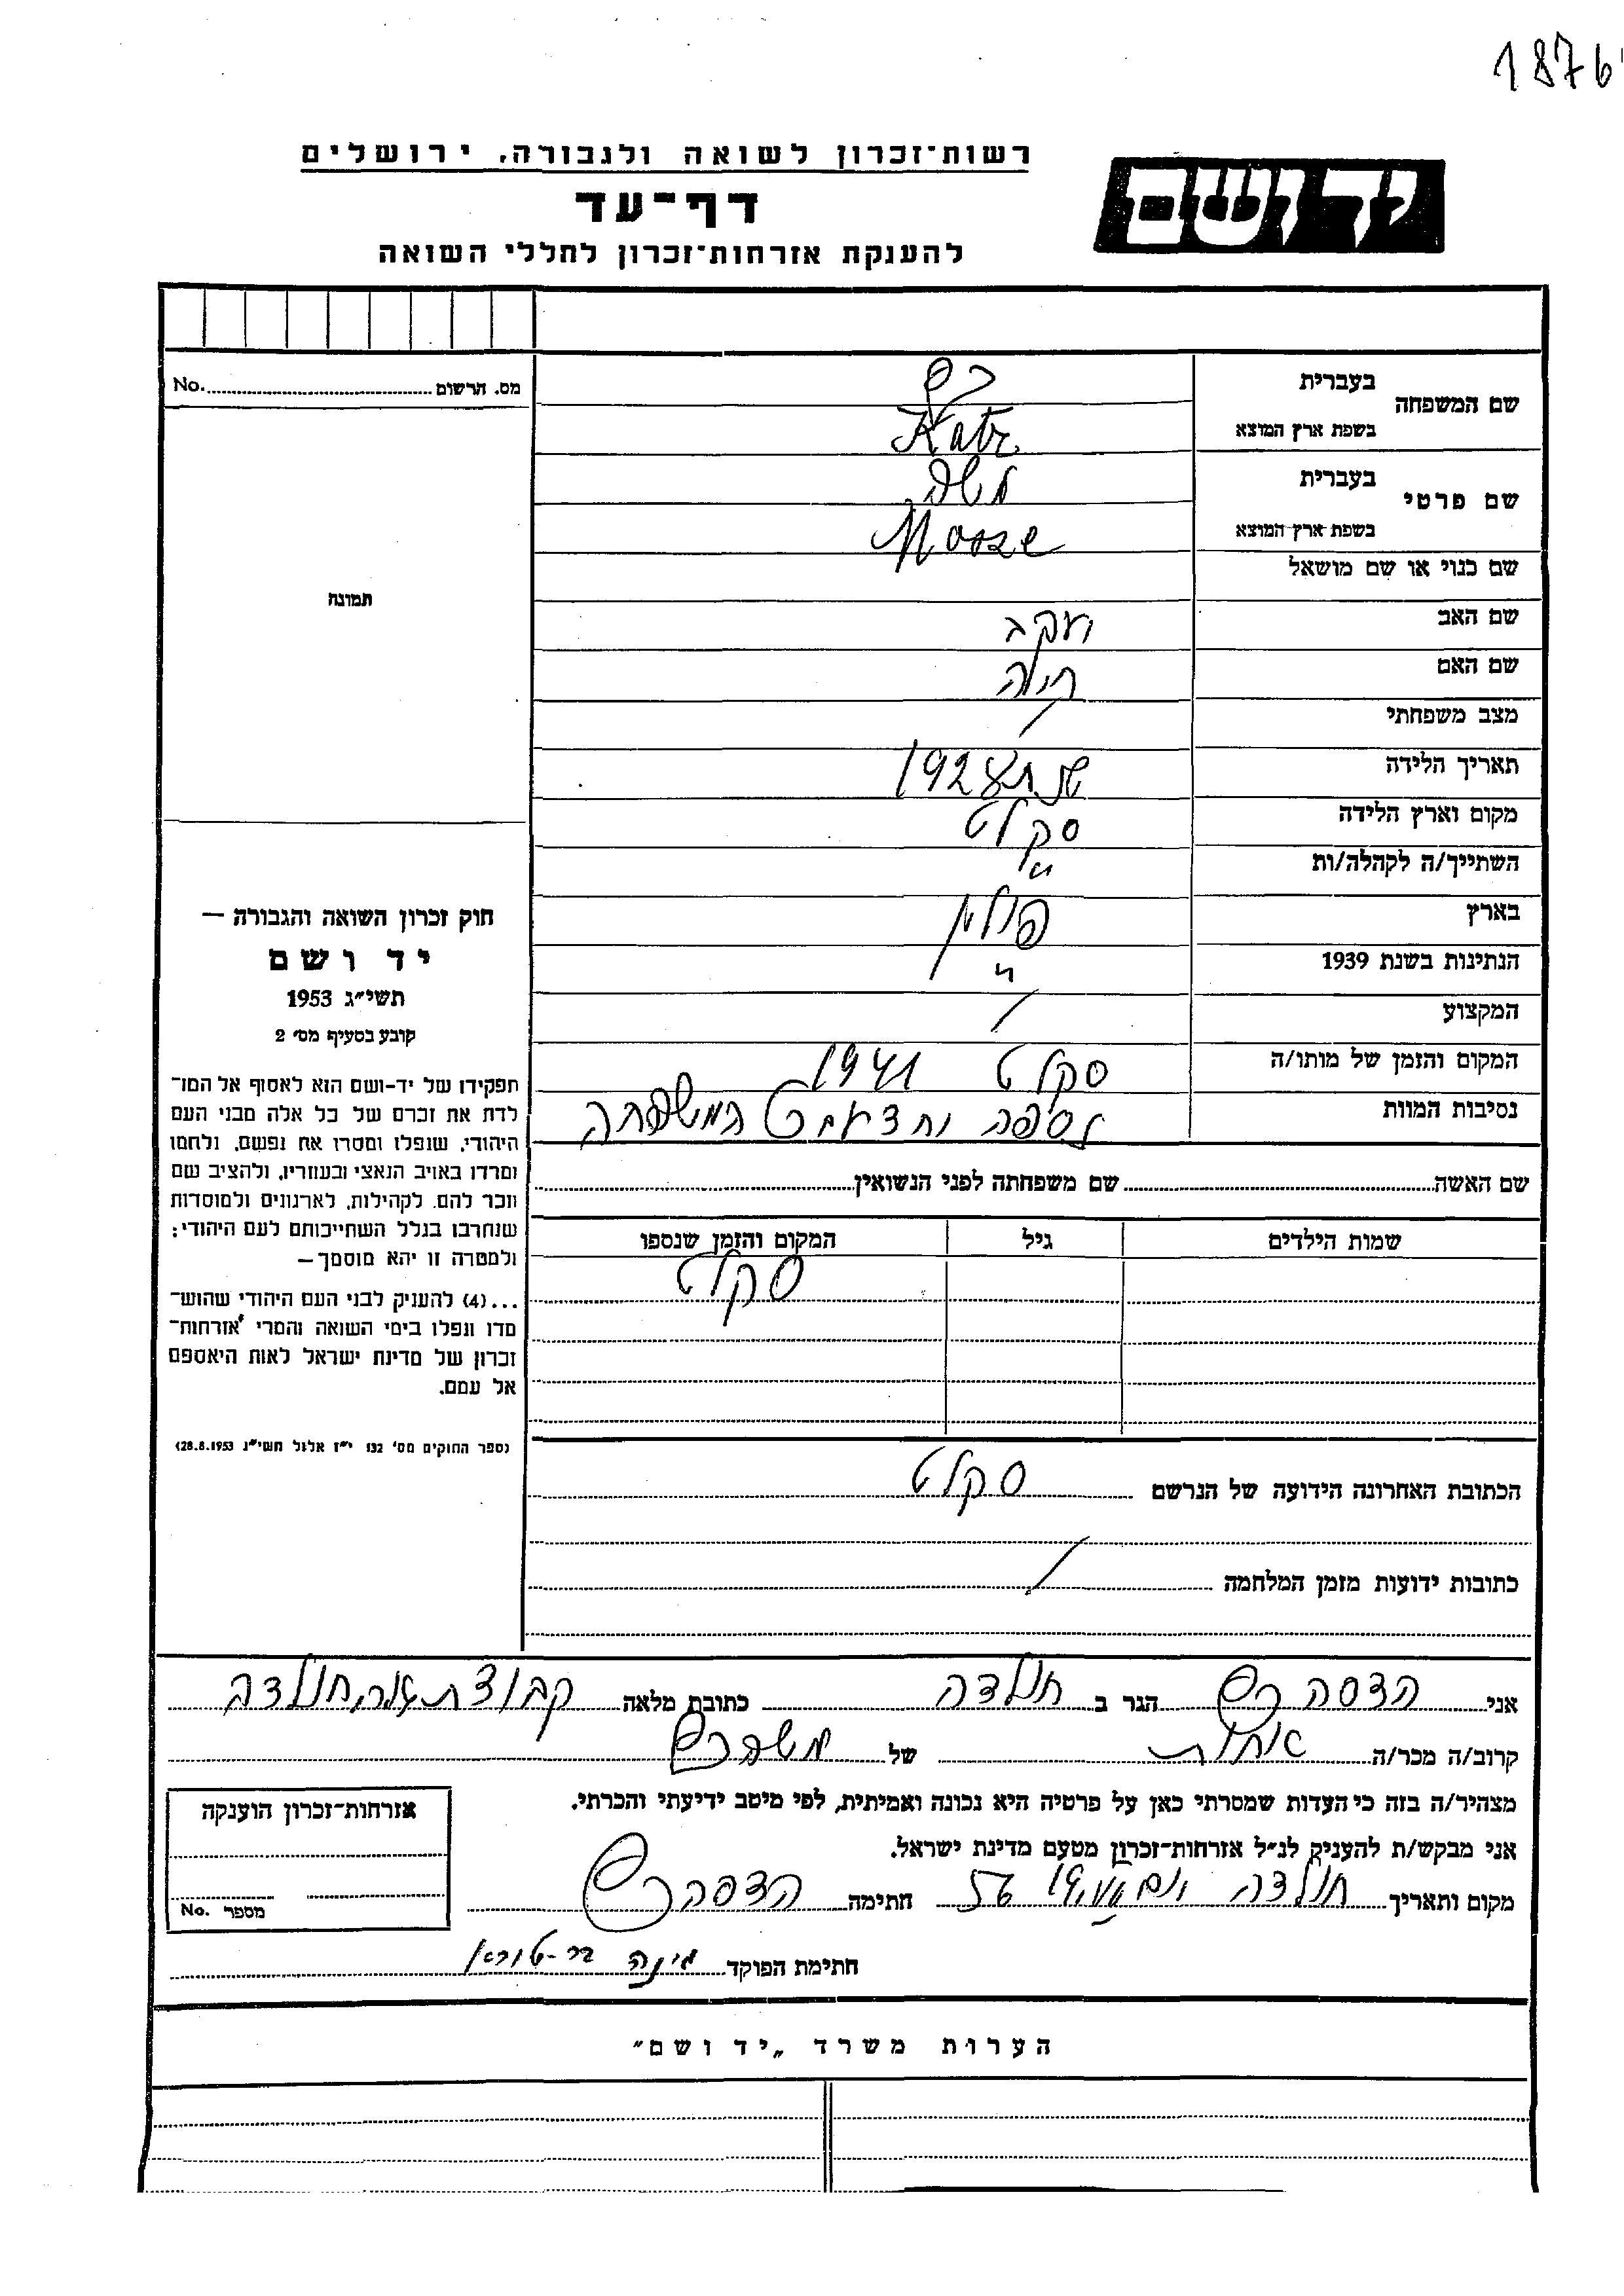 1876
רשות־זכרון לשואה ולגבורה, ירושלים
יד ושם
דף־עד
להענקת אזרחות־זכרון לחללי השואה
מס. הרשום No.
תמונה
שם המשפחה בעברית כץ
בשפת ארץ המוצא Katz
שם פרטי בעברית משה
בשפת ארץ המוצא Mosze
שם כנוי או שם מושאל
שם האב יעקב
שם האם
מצב משפחתי /
תאריך הלידה שנת 1928
מקום וארץ הלידה סקלט
השתייך/ה לקהלה/ות "
בארץ פולין
הנתינות בשנת 1939 "
המקצוע /
המקום והזמן של מותו/ה סקלט 1941
נסיבות המוות נספה המשפחה
שם האשה שם משפחתה לפני הנשואין
שמות הילדים גיל המקום והזמן שנספו
סקלט
הכתובת האחרונה הידועה של הנרשם סקלט
כתובות ידועות מזמן המלחמה /
חוק זכרון השואה והגבורה —
יד ושם
תשי״ג 1953
קובע בסעיף מס׳ 2
תפקידו של יד-ושם הוא לאסוף אל המו־
לדת את זכרם של כל אלה מבני העם
היהודי, שנפלו ומסרו את נפשם, נלחמו
ומרדו באויב הנאצי ובעוזריו, ולהציב שם
וזכר להם, לקהילות, לארגונים ולמוסדות
שנחרבו בגלל השתייכותם לעם היהודי;
ולמטרה זו יהא מוסמך —
...(4) להעניק לבני העם היהודי שהוש־
מדו ונפלו בימי השואה והמרי אזרחות־
זכרון של מדינת ישראל לאות היאספם
אל עמם.
(ספר החוקים מס׳ 132 י״ז אלול תשי״ג 28.8.1953)
אני הדסה כץ הגר ב חולדה כתובת מלאה קבוצת חולדה
קרוב/ה מכר/ה אחות של משה כץ
מצהיר/ה בזה כי העדות שמסרתי כאן על פרטיה היא נכונה ואמיתית, לפי מיטב ידיעתי והכרתי.
אני מבקש/ת להעניק לנ״ל אזרחות־זכרון מטעם מדינת ישראל.
מקום ותאריך חולדה חתימה הדסה כץ
חתימת הפוקד
אזרחות־זכרון הוענקה
מספר No.
הערות משרד „יד ושם״